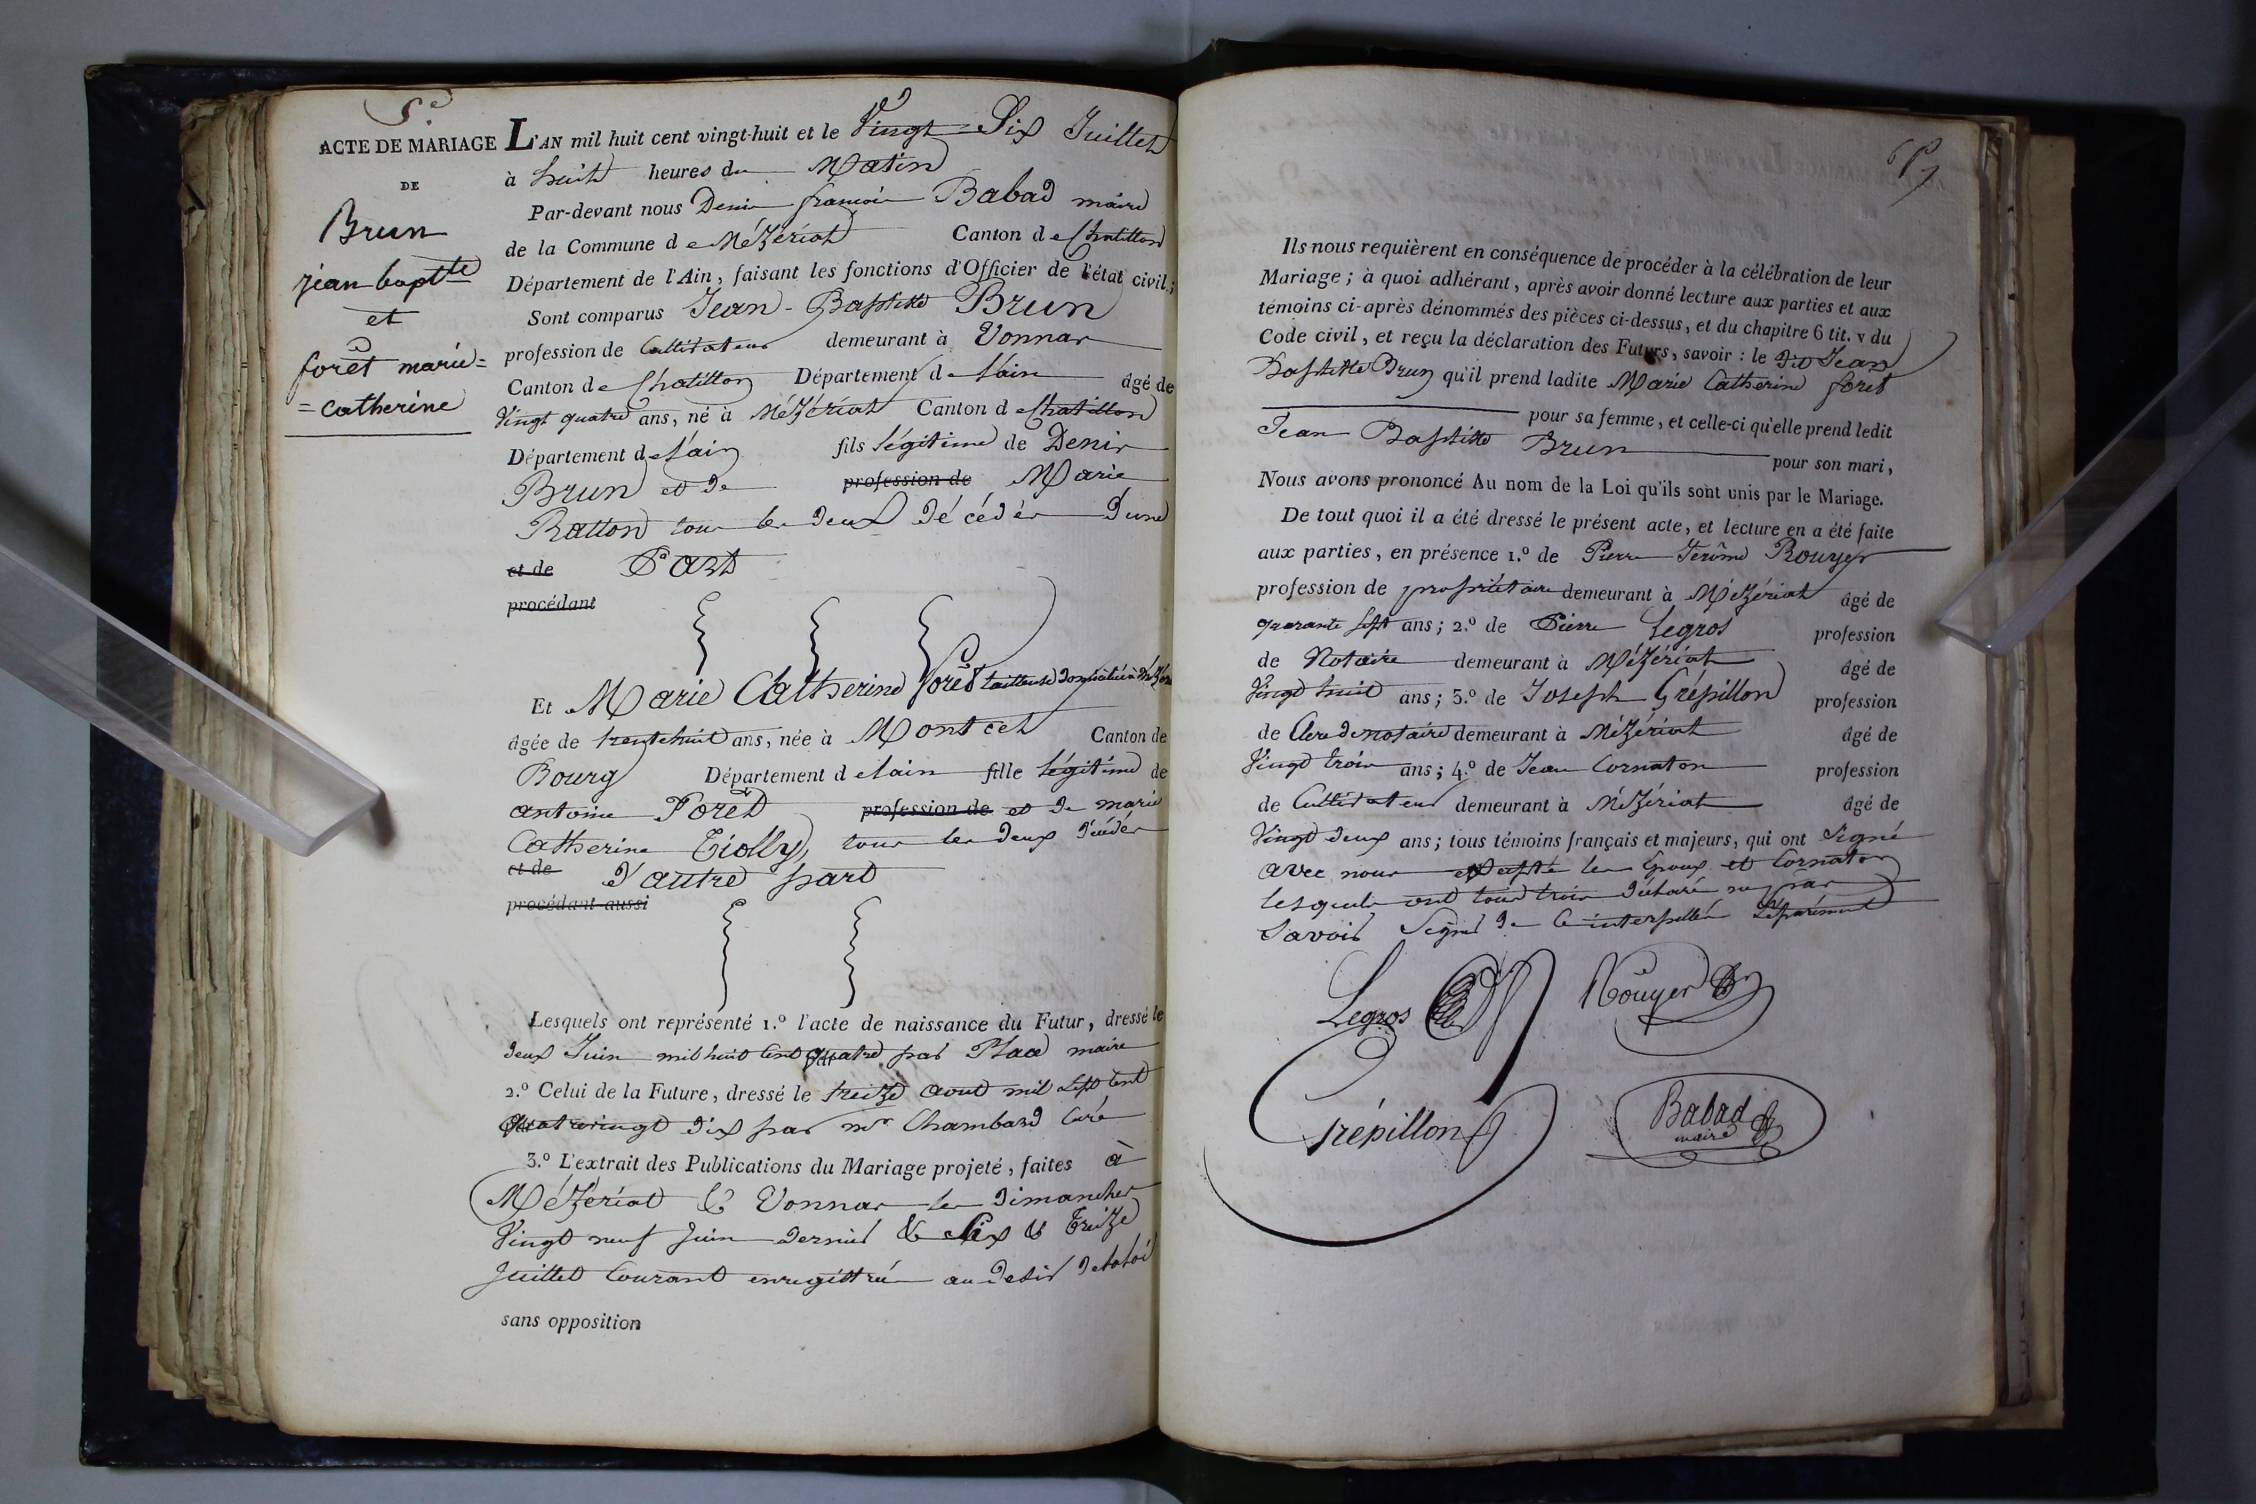 5e
ACTE DE MARIAGE
DE
Brun
jean baptte
et
forêt marie=
=catherine
L'AN mil huit cent vingt-huit et le Vingt-Six Juillet
à huit heures du Matin
Par-devant nous Denis françois Babad maire
de la Commune de Mézériat Canton de Chatillon
Département de l'Ain, faisant les fonctions d'Officier de l'état civil;
Sont comparus Jean-Baptiste Brun
profession de Cultivateur demeurant à Vonnas
Canton de Chatillon Département de lain âgé de
Vingt quatre ans, né à Mézériat Canton de Chatillon
Département de lain fils légitime de Denis
Brun et de profession de Marie
Ratton tous les deux décédés Dune
et de Part
procédant
Et Marie Catherine forêt tailleuse domiciliée à Mézériat
âgée de trente huit ans, née à Montcet Canton de
Bourg Département de lain fille légitime de
antoine Forêt profession de et de marie
Catherine Tiolly, tous les deux décédés
et de d'autre part
procédant aussi
Lesquels ont représenté 1.º l'acte de naissance du Futur, dressé le
deux Juin mil huit cent quatre par Place maire
2.º Celui de la Future, dressé le treize aout mil sept cent
quatrevingt dix par mr Chambard Curé
3.º L'extrait des Publications du Mariage projeté, faites à
Mézériat & Vonnas les dimanches
Vingt neuf juin dernier & Six & Treize
Juillet Courant enregistrées au desir de la loi
sans opposition
67
Ils nous requièrent en conséquence de procéder à la célébration de leur
Mariage; à quoi adhérant, après avoir donné lecture aux parties et aux
témoins ci-après dénommés des pièces ci-dessus, et du chapitre 6 tit. v du
Code civil, et reçu la déclaration des Futurs, savoir: le dit Jean
Baptiste Brun qu'il prend ladite Marie Catherine forêt
pour sa femme, et celle-ci qu'elle prend ledit
Jean Baptiste Brun pour son mari,
Nous avons prononcé Au nom de la Loi qu'ils sont unis par le Mariage.
De tout quoi il a été dressé le présent acte, et lecture en a été faite
aux parties, en présence 1.º de Pierre Jérôme Rouyer
profession de propriétaire demeurant à Mézériat âgé de
quarante sept ans; 2.º de Pierre Legros profession
de Notaire demeurant à Mézériat âgé de
Vingt huit ans; 3.º de Joseph Grépillon profession
de Clerc de notaire demeurant à Mézériat âgé de
Vingt trois ans; 4.º de Jean Cornaton profession
de Cultivateur demeurant à Mézériat âgé de
Vingt deux ans; tous témoins français et majeurs, qui ont Signé
avec nous excepté les Epoux et Cornaton
lesquels ont tous trois déclaré ne pas
Savoir Signer de ce interpellés Séparément
Legros
Rouyer
Grépillon
Babad
maire